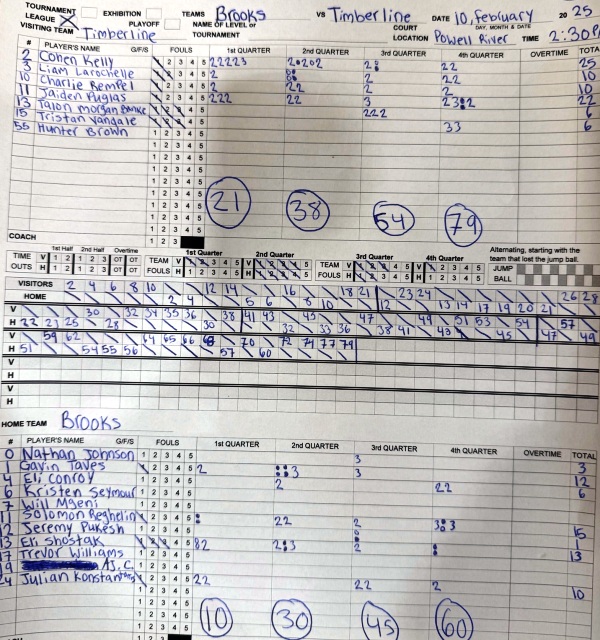 TOURNAMENT EXHIBITION TEAMS Brooks VS Timberline DATE 10, february 20 25
LEAGUE X PLAYOFF NAME OF LEVEL or TOURNAMENT COURT LOCATION Powell River DAY, MONTH & DATE TIME 2:30p
VISITING TEAM Timberline
# PLAYER'S NAME G/F/S FOULS 1st QUARTER 2nd QUARTER 3rd QUARTER 4th QUARTER OVERTIME TOTA
2 Cohen Kelly 1 2 3 4 5 22223 22 25
3 Liam Larochelle 1 2 3 4 5 2 2 22 10
10 Charlie Rempel 1 2 3 4 5 2 22 2 2 10
11 Jaiden Puglas 1 2 3 4 5 222 22 3 22
13 1 2 3 4 5 222 6
15 Tristan Vandale 1 2 3 4 5
55 Hunter Brown 1 2 3 4 5 33 6
1 2 3 4 5
1 2 3 4 5
1 2 3 4 5
1 2 3 4 5
21 38 54 79
COACH 1 2 3
1st Half 2nd Half Overtime 1st Quarter 2nd Quarter 3rd Quarter 4th Quarter
TIME OUTS V 1 2 1 2 3 OT OT TEAM FOULS V 1 2 3 4 5 V 1 2 3 4 5 TEAM FOULS V 1 2 3 4 5 V 1 2 3 4 5
H 1 2 1 2 3 OT OT H 1 2 3 4 5 H 1 2 3 4 5 H 1 2 3 4 5 H 1 2 3 4 5
Alternating, starting with the team that lost the jump ball.
JUMP BALL
VISITORS 2 4 6 8 10 12 14 16 18 21 23 24 26 28
HOME 2 4 5 6 8 10 12 13 14 17 19 20 21
V 30 32 34 35 36 38 41 43 45 47 49 51 53 54 57
H 22 21 25 28 30 32 33 36 38 41 43 45 47 49
V 59 62 64 65 66 68 70 72 74 77 79
H 51 54 55 56 57 60
V
H
V
H
HOME TEAM Brooks
# PLAYER'S NAME G/F/S FOULS 1st QUARTER 2nd QUARTER 3rd QUARTER 4th QUARTER OVERTIME TOTAL
0 Nathan Johnson 1 2 3 4 5 3 3
1 Gavin Taves 1 2 3 4 5 2 3 3 12
4 Eli Conroy 1 2 3 4 5 2 22 6
6 Kristen Seymour 1 2 3 4 5
7 Will Mgeni 1 2 3 4 5
11 Solomon Reghelin 1 2 3 4 5 22 2 3 3 15
12 Jeremy Pukesh 1 2 3 4 5 1
13 Eli Shostak 1 2 3 4 5 2 2 3 2 13
17 Trevor Williams 1 2 3 4 5
19 A.J. C. 1 2 3 4 5
24 Julian 1 2 3 4 5 22 22 2 10
1 2 3 4 5
1 2 3 4 5
10 30 45 60
1 2 3